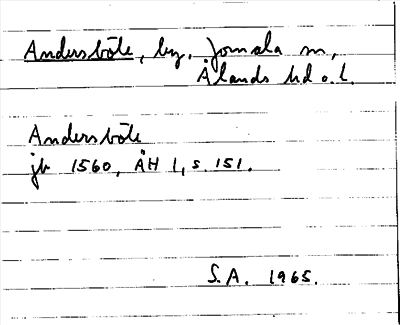 Andersböle, by, Jomala sn,
Ålands hd o. l.
Andersböle
jb 1560, ÅH 1, s. 151.
S.A. 1965.